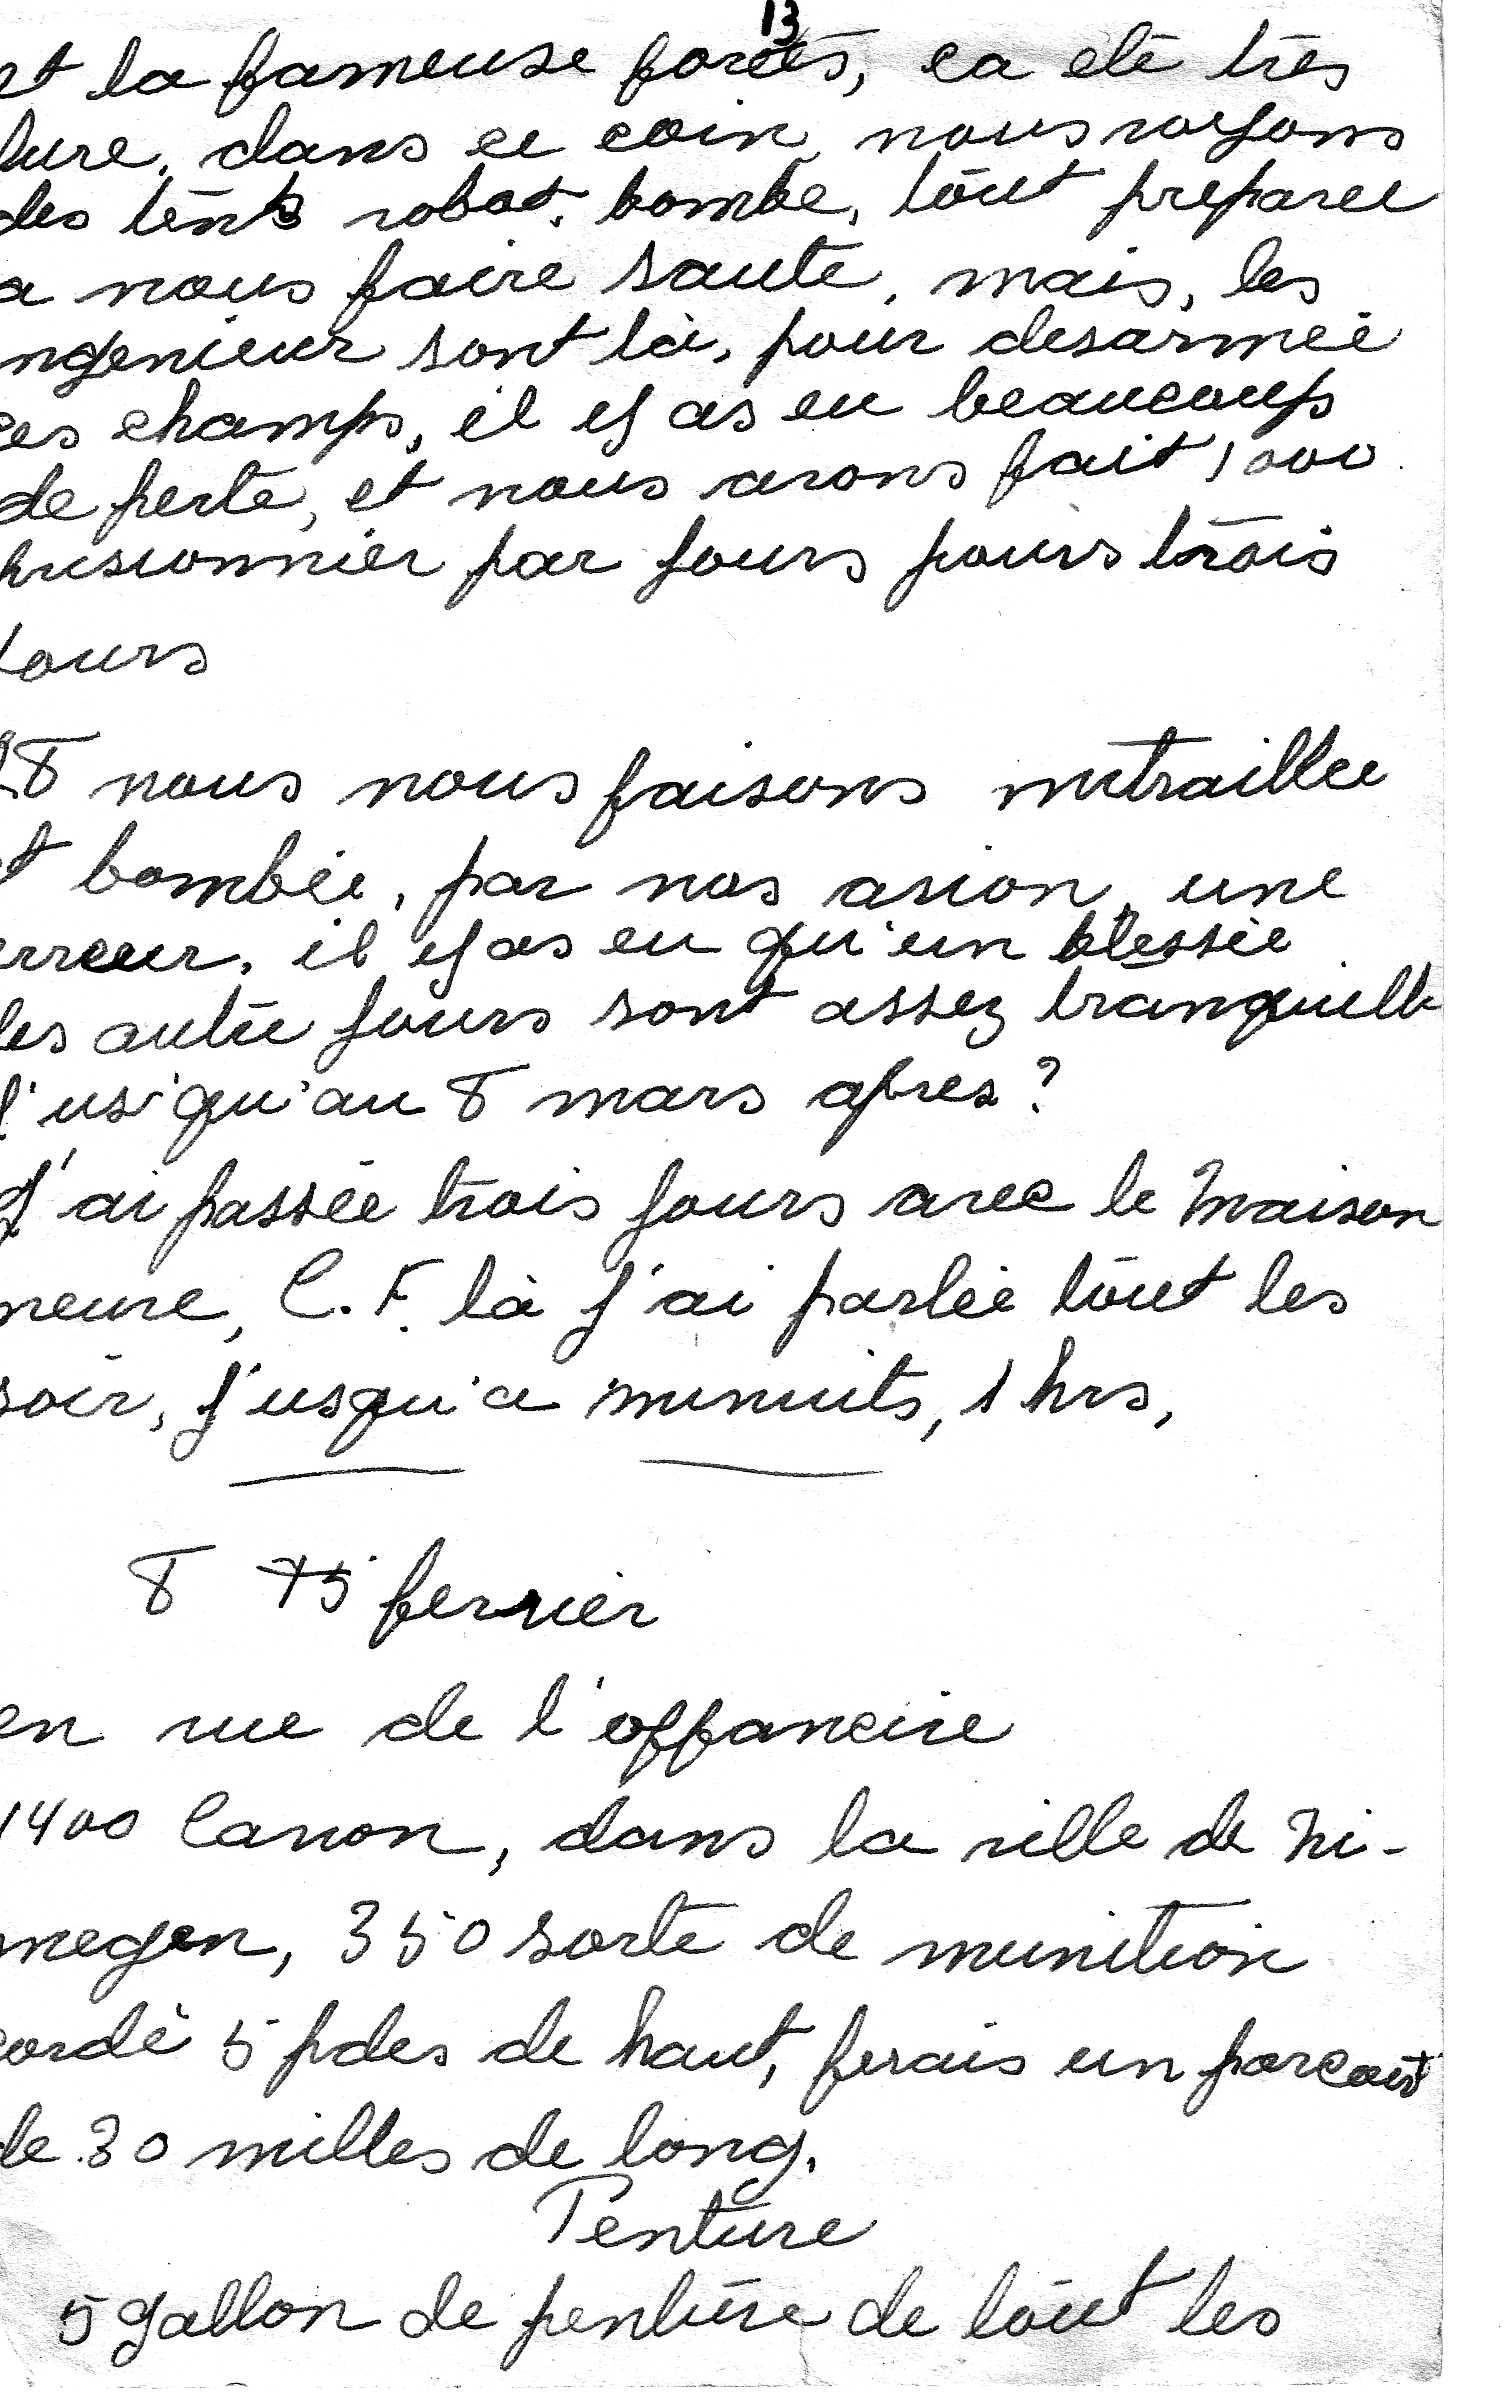 13
et la fameuse forets, ca eté très
dure, dans ce coin, nous voyons
des tents robot, bombe, tout preparee
a nous faire sauté, mais, les
ngenieur sont là, pour desarmeé
ces champs, il y as eu beaucoups
de perte, et nous avons fait 1000
prisionnier par jours pours trois
jours
28 nous nous faisons mitraillee
et bombée, par nos avion, une
erreur, il y as eu qu'un blessée
les autre jours sont assez tranquille
j'usqu'au 8 mars apres?
J'ai passée trois jours avec le Maison
neuve, C. F. là j'ai parlée tout les
soir, j'usqu'a minuits, 1 hrs,
8 fevrier
en vue de l'offancive
1400 Canon, dans la ville de Ni-
megen, 350 sorte de munition
cordé 5 pdes de haut, ferais un parcour
de 30 milles de long.
Penture
5 gallon de penture de tout les